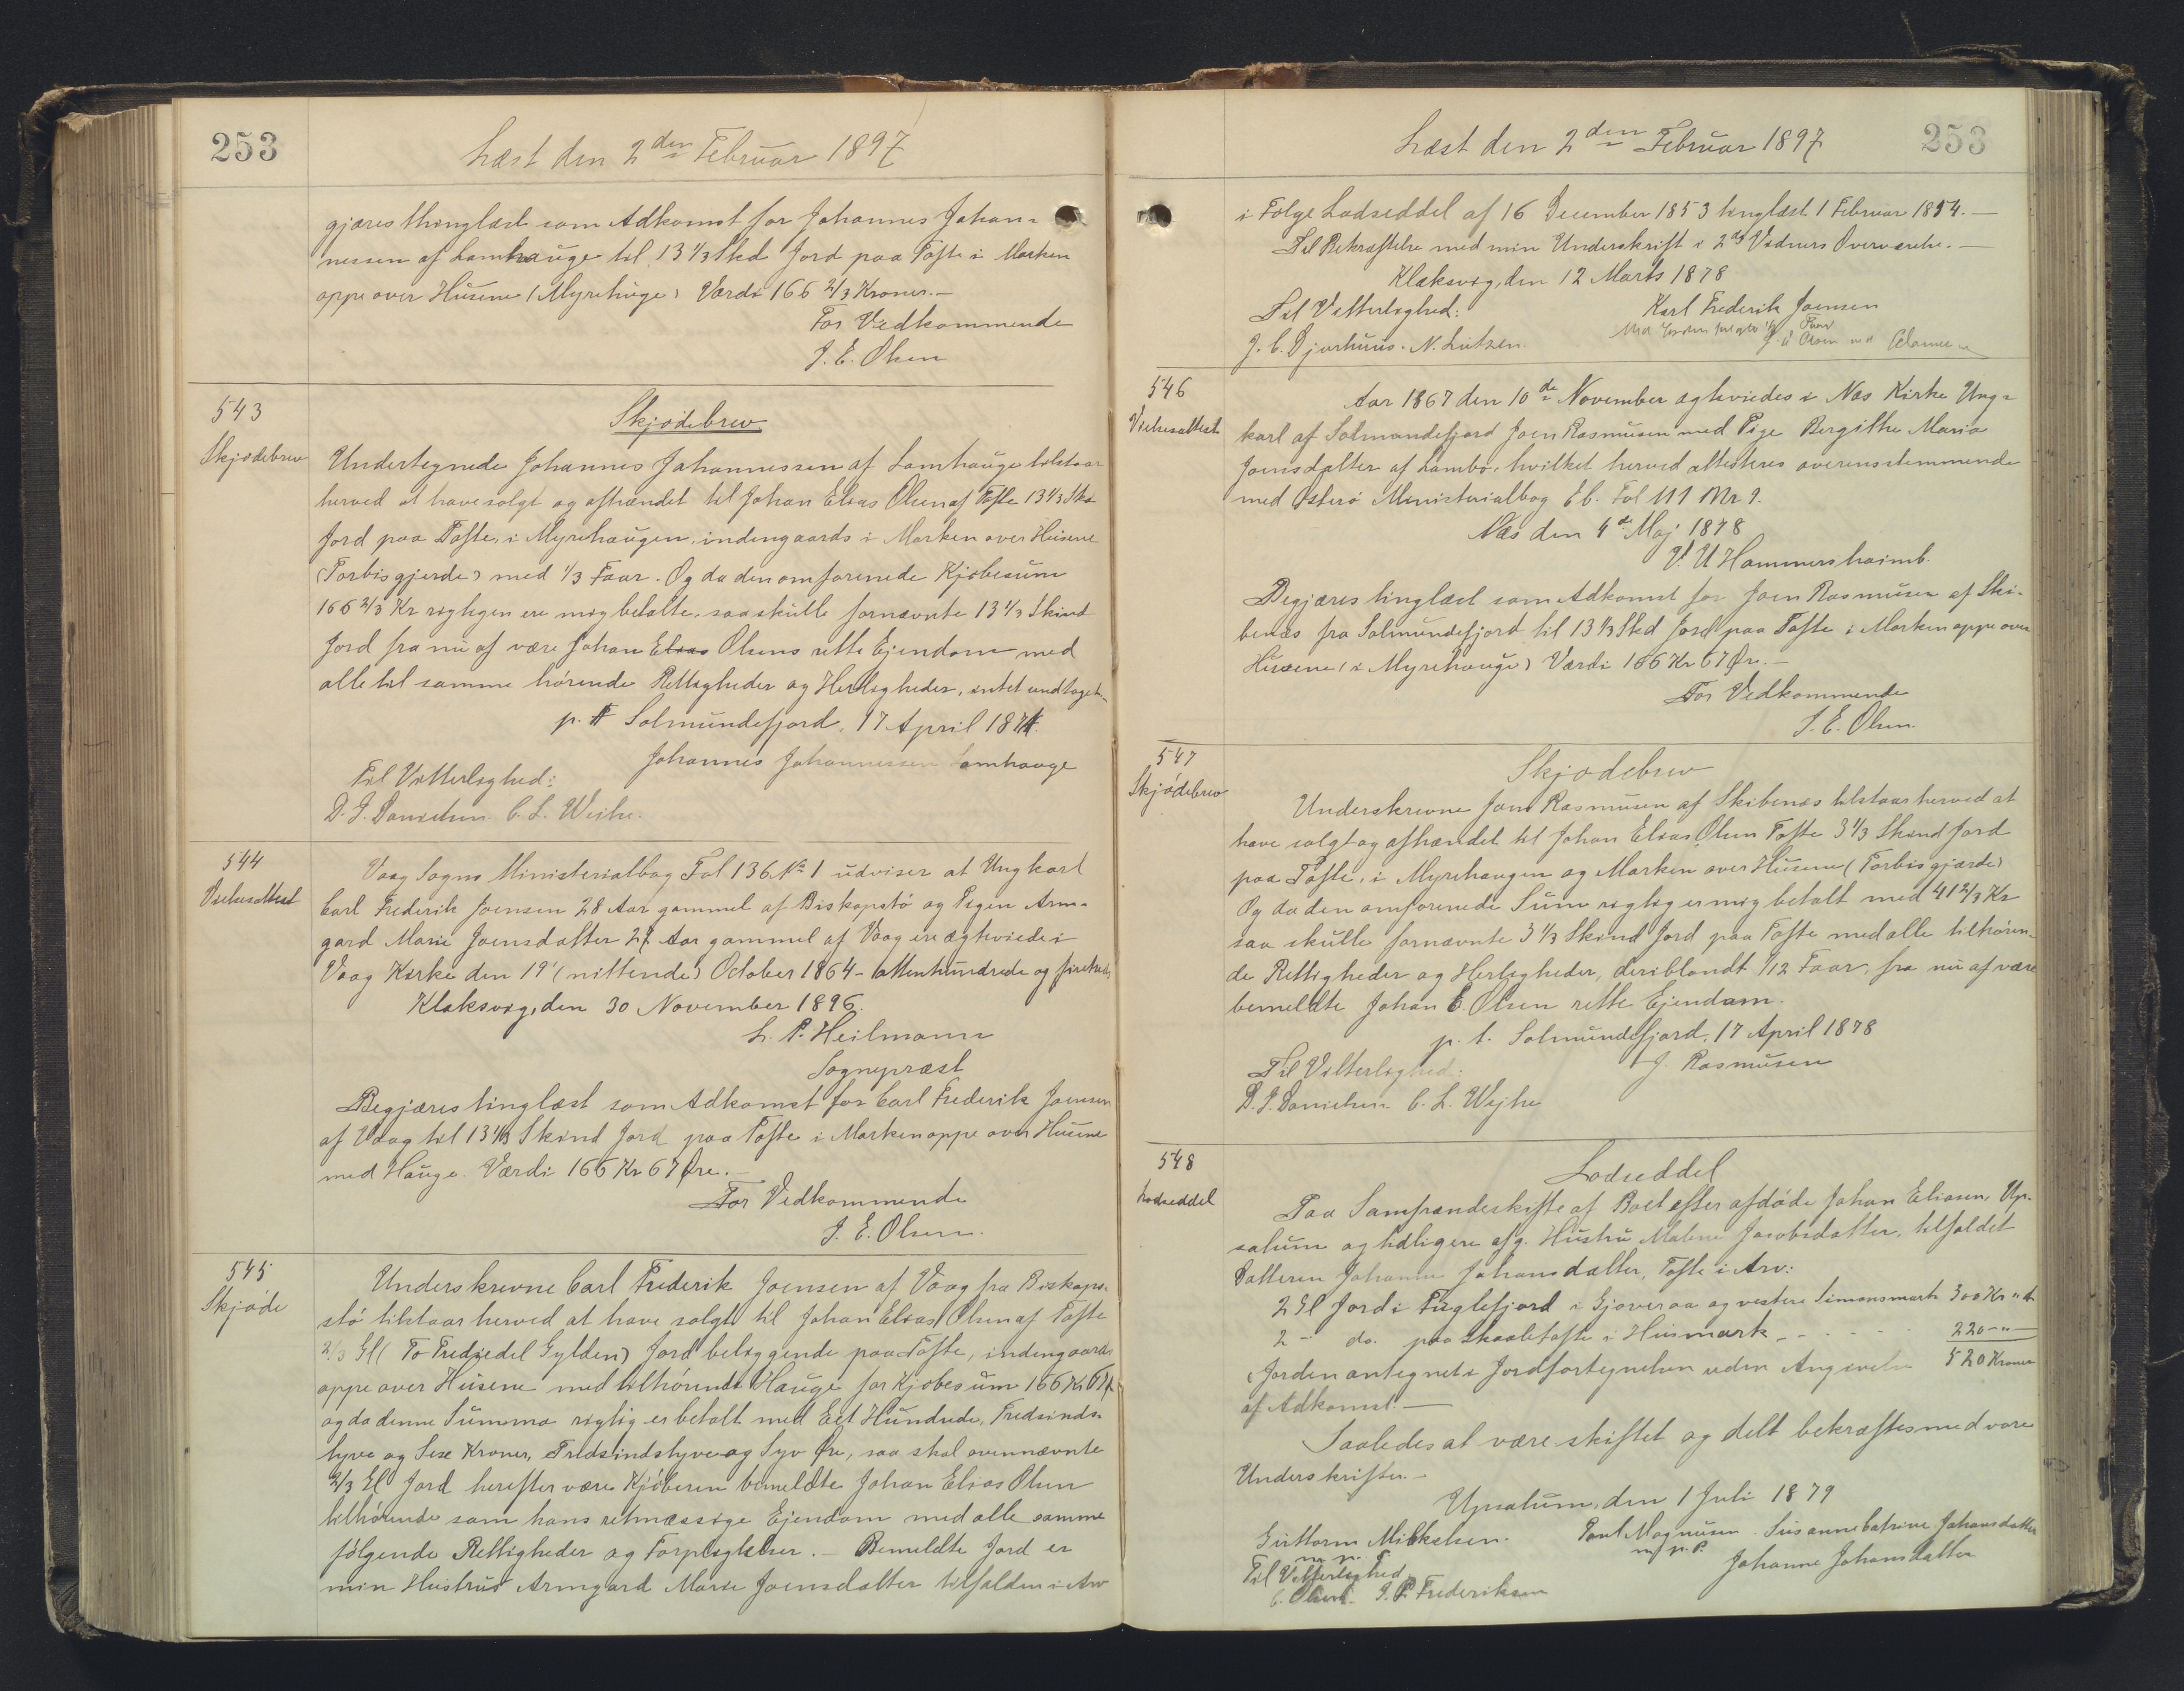 253
Læst den 2den Februar 1897
gjæres thinglæst som Adkomst for Johannes Johan=
nessen af Lamhauge til 13 1/3 Skd Jord paa Tofte i Marken
oppe over Husene (Myrehuge) Værdi 166 2/3 Kroner.—
For Vedkommende
J. E. Olsen
543
Skjødebrev
Skjødebrev
Undertegnede Johannes Johannessen af Lamhauge tilstaar
herved at have solgt og afhændet til Johan Elias Olsen af Tofte 13 1/3 Skd
Jord paa Tofte, i Myrehaugen, indengaards i Marken over Husene
(Torbisgjerde) med 1/3 Faar. Og da den omforenede Kjøbesum
166 2/3 Kr rigtigen ere mig betalte, saa skulle fornævnte 13 1/3 Skind
Jord fra nu af være Johan Elias Olsens rette Ejendom med
alle til samme hørende Rettigheder og Herligheder, intet undtaget.
p. t Solmundefjord, 17 April 1878.
Johannes Johannessen Lamhauge
Til Vitterlighed:
D. J. Danielsen. C. L. Weihe.
544
Vielsesattest
Vaag Sogns Ministerialbog Fol 136 No 1 udviser at Ungkarl
Carl Frederik Joensen 28 Aar gammel af Biskopstø og Pigen Arm-
gard Marie Joensdatter 27 Aar gammel af Vaag ere ægteviede i
Vaag Kirke den 19' (nittende) October 1864 - attenhundrede og firetreds
Klaksvig, den 30 November 1896.
L. P. Heilmann
Sognepræst
Begjæres tinglæst som Adkomst for Carl Frederik Joensen
af Vaag til 13 1/3 Skind Jord paa Tofte i Marken oppe over Husene
med Hauge. Værdi 166 Kr 67 Øre.—
For Vedkommende
J. E. Olsen.
545
Skjøde
Underskrevne Carl Frederik Joensen af Vaag fra Biskops-
stø tilstaar herved at have solgt til Johan Elias Olsen af Tofte
2/3 Gl (To Tredjedel Gylden) Jord beliggende paa Tofte, indengaards
oppe over Husene med tilhørende Hauge for Kjøbesum 166 Kr 67
og da denne Summa rigtig er betalt med Eet Hundrede, Tredsinds-
tyve og Sex Kroner, Tredsindstyve og Syv Øre, saa skal ovennævnte
2/3 Gl Jord herefter være Kjøberen bemeldte Johan Elias Olsen
tilhørende som hans retmæssige Ejendom med alle samme
følgende Rettigheder og Forpligtelser. — Bemeldte Jord er
min Hustrus Armgard Marie Joensdatter tilfalden i Arv
Læst den 2den Februar 1897
253
i Følge Lodseddel af 16 December 1853 tinglæst 1 Februar 1854.—
Til Bekræftelse med min Underskrift i 2de Vidners Overværelse.—
Klaksvig, den 12 Marts 1878
Karl Frederik Joensen
Til Vitterlighed:
J. C. Djurhuus. N. Lützen.
Med Jorden følger 1/3 Faar
546
Vielsesattest
Aar 1867 den 10de November ægteviedes i Næs Kirke Ung=
karl af Solmundefjord Joen Rasmusen med Pige Bergithe Maria
Joensdatter af Lambø, hvilket herved attesteres overensstemmende
med Østerø Ministerialbog Eb. Fol 111 Nr 9.
Næs den 4de Maj 1878
V. U Hammershaimb.
Begjæres tinglæst som Adkomst for Joen Rasmusen af Ski-
benæs fra Solmundefjord til 13 1/3 Skd Jord paa Tofte i Marken oppe over
Husene (i Myrehauge) Værdi 166 Kr 67 Ør.—
For Vedkommende
J. E. Olsen.
547
Skjødebrev
Skjødebrev
Underskrevne Joen Rasmusen af Skibenæs tilstaar herved at
have solgt og afhændet til Johan Elias Olsen Tofte 3 1/3 Skind Jord
paa Tofte, i Myrehaugen og Marken over Husene (Torbisgjærde)
Og da den omforenede Sum rigtig er mig betalt med 41 2/3 Kr
saa skulle fornævnte 3 1/3 Skind Jord paa Tofte med alle tilhøren-
de Rettigheder og Herligheder, deriblandt 1/12 Faar, fra nu af være
bemeldte Johan E. Olsen rette Ejendom.
p. t. Solmundefjord, 17 April 1878
J. Rasmusen
Til Vitterlighed:
D. J. Danielsen C. L. Wejhe
548
Lodseddel
Lodseddel
Paa Samfrændeskifte af Boet efter afdøde Johan Eliasen, Up-
salum og tidligere afg. Hustru Malene Jacobsdatter, tilfaldet
Datteren Johanne Johansdatter, Tofte i Arv:
2 Gl Jord i Fuglefjord i Gjoveraa og vestere Simonsmark 300 Kr " Ø
2 - do. paa Skaaletofte i Husmark - - - - - 220 - "
Jorden antegnet i Jordfortegnelsen uden Angivelse 520 Kroner
af Adkomst.—
Saaledes at være skiftet og delt bekræftes med vore
Underskrifter.—
Upsalum, den 1 Juli 1879
Guttorm Mikkelsen. Poul Magnusen. Susanne Catrine Johansdatter
m. p. P. m. p. P.
Til Vitterlighed Johanne Johansdatter
C. Olsen. J. P. Frederiksen